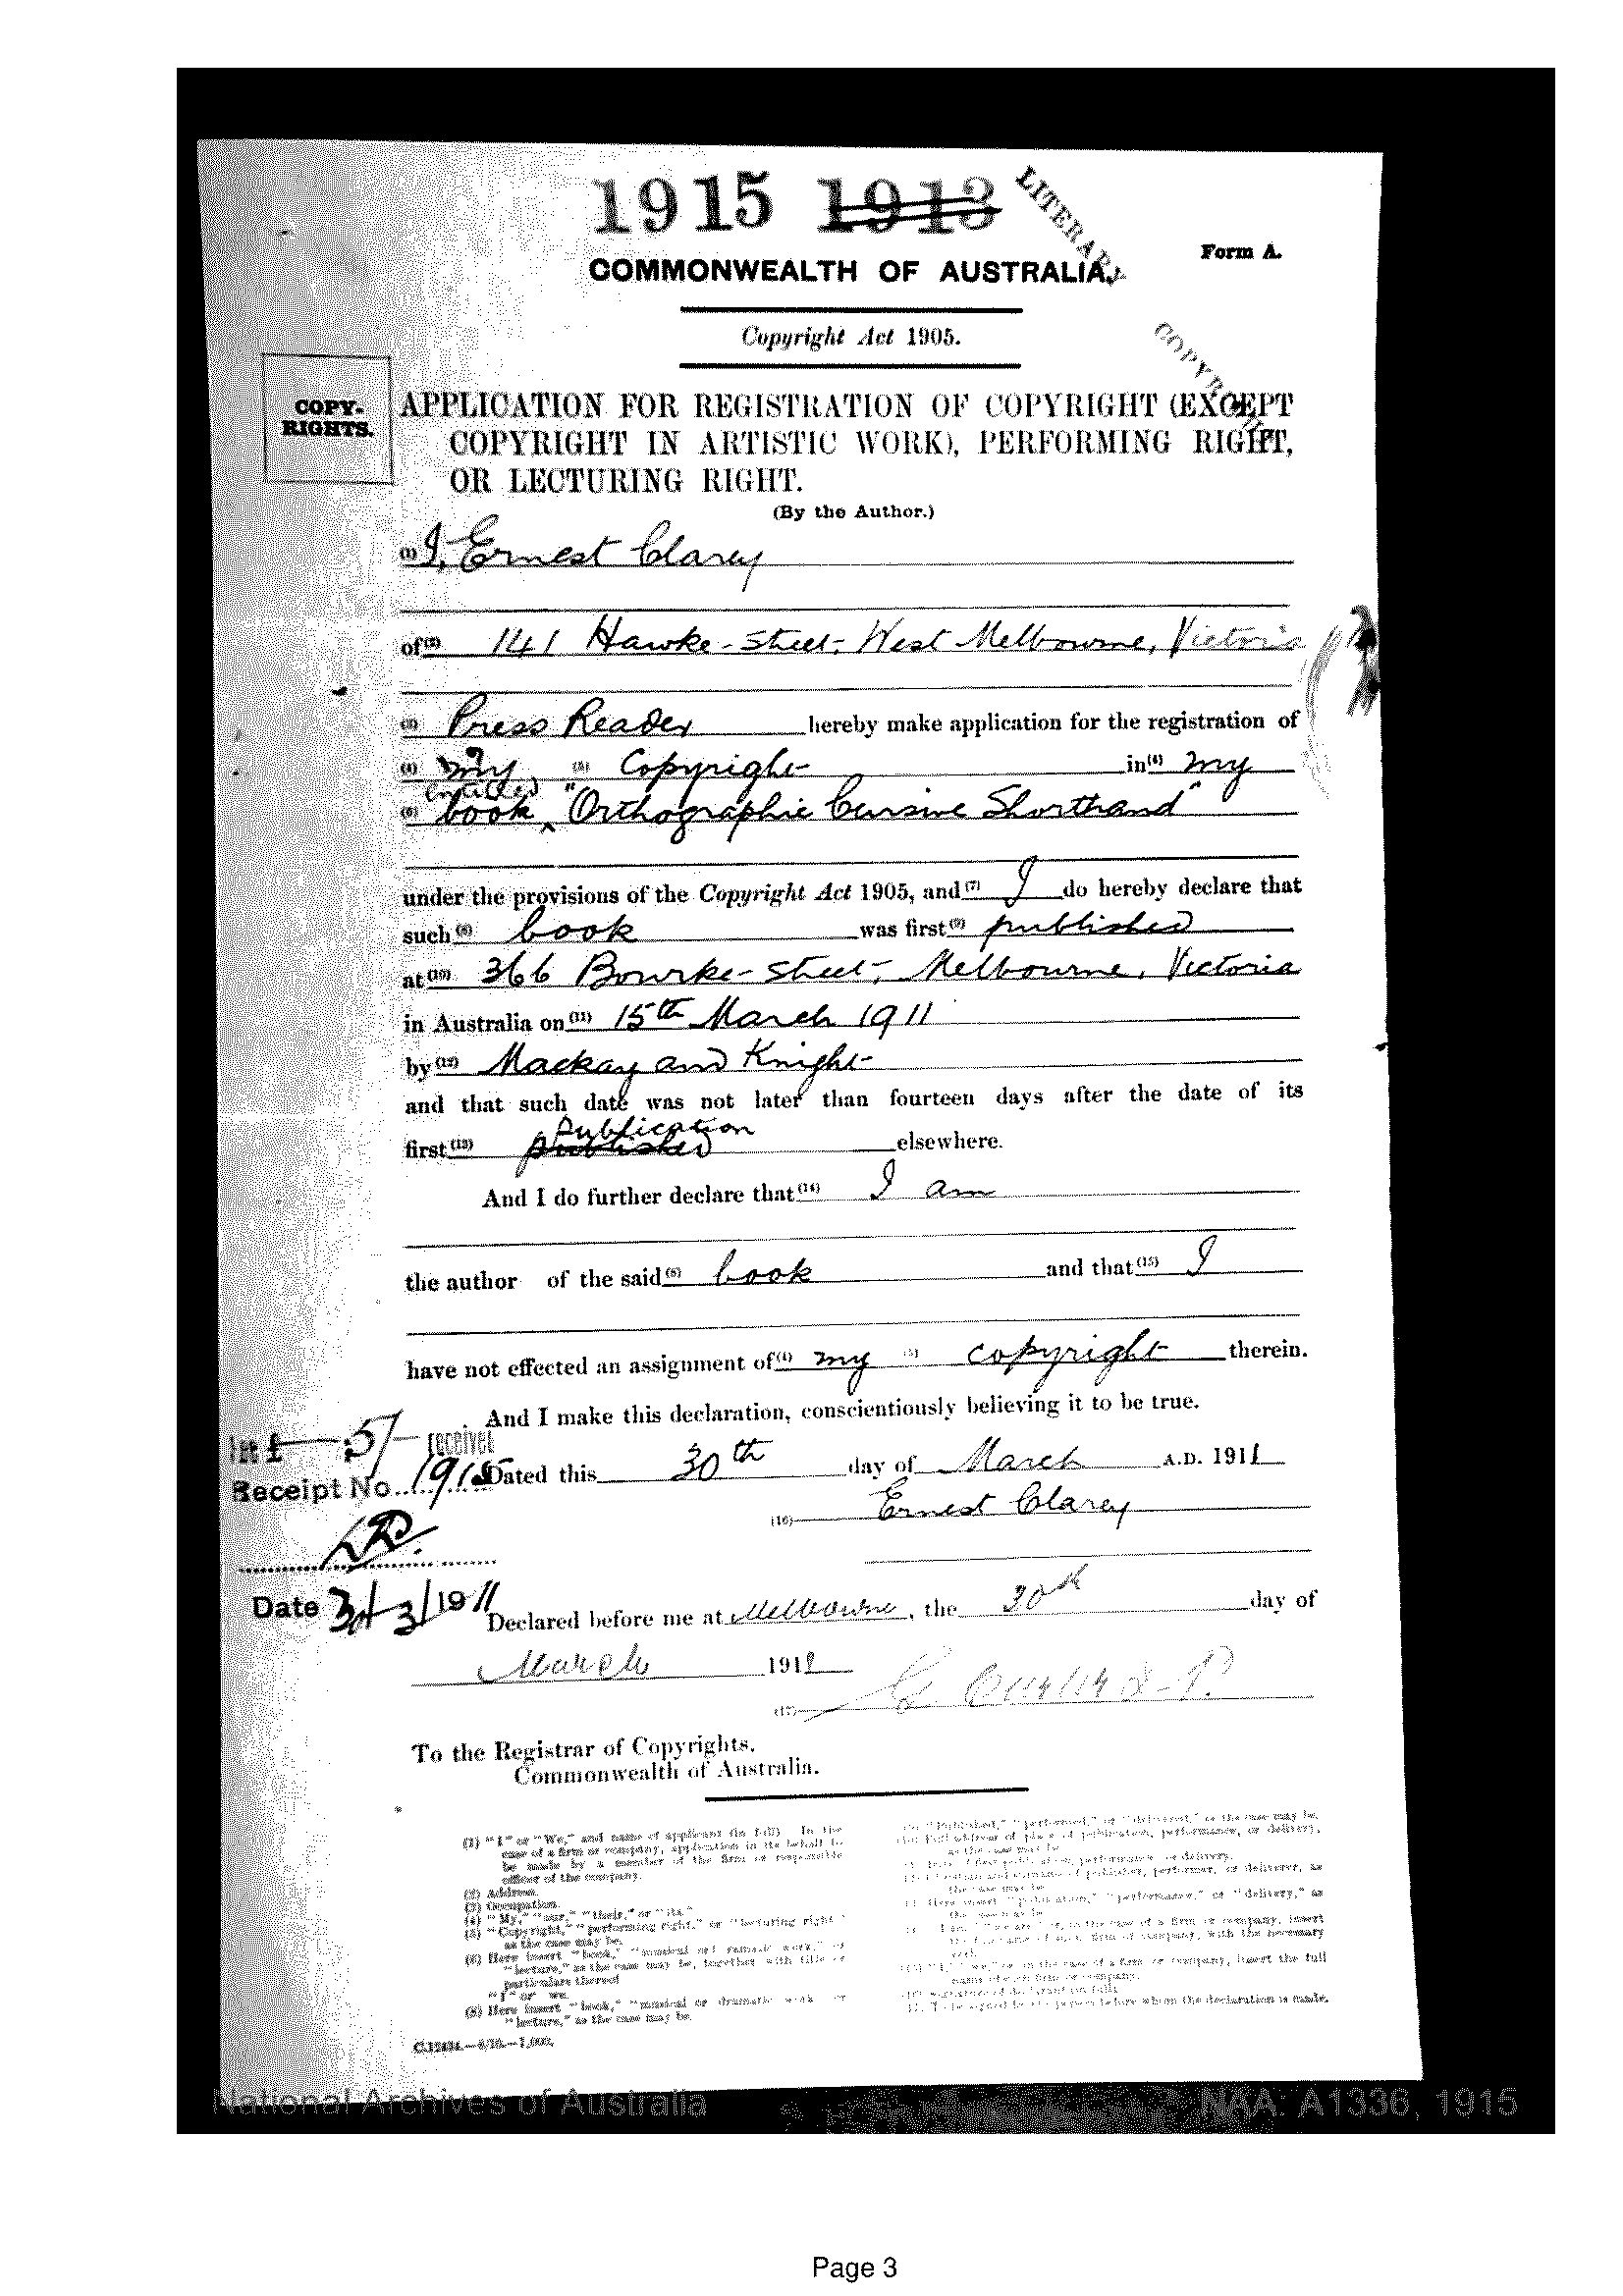 1915 1913
LITERARY
COMMONWEALTH OF AUSTRALIA.
Form A.
Copyright Act 1905.
COPYRIGHT
COPY-
RIGHTS.
APPLICATION FOR REGISTRATION OF COPYRIGHT (EXCEPT
COPYRIGHT IN ARTISTIC WORK), PERFORMING RIGHT,
OR LECTURING RIGHT.
(By the Author.)
(1) I, Ernest Clarey
of (2) 141 Hawke-Street, West Melbourne, Victoria
(3) Press Reader hereby make application for the registration of
(4) my (5) Copyright in (4) my
entitled
(6) book "Orthographic Cursive Shorthand"
under the provisions of the Copyright Act 1905, and (7) I do hereby declare that
such (8) book was first (9) published
at (10) 366 Bourke-Street, Melbourne, Victoria
in Australia on (11) 15th March 1911
by (12) Mackay and Knight
and that such date was not later than fourteen days after the date of its
Publication
first (13) published elsewhere.
And I do further declare that (14) I am
the author of the said (8) book and that (15) I
have not effected an assignment of (4) my (5) copyright therein.
And I make this declaration, conscientiously believing it to be true.
5/- received
Receipt No. 1915
Dated this 30th day of March A.D. 1911
(16) Ernest Clarey
Date 30/3/1911
Declared before me at Melbourne, the 30th day of
March 1911
(17)
To the Registrar of Copyrights,
Commonwealth of Australia.
(1) "I" or "We," and name of applicant (in full). In the
case of a firm or company, application in its behalf to
be made by a member of the firm or responsible
officer of the company.
(2) Address.
(3) Occupation.
(4) "My," "our," "their," or "its."
(5) "Copyright," "performing right," or "lecturing right"
as the case may be.
(6) Here insert "book," "musical or dramatic work," or
"lecture," as the case may be, together with title or
particulars thereof
"I" or "we."
(8) Here insert "book," "musical or dramatic work" or
"lecture," as the case may be.
"Published," "performed," or "delivered," as the case may be.
Full address of place of publication, performance, or delivery,
as the case may be
Date of first publication, performance or delivery.
Christian and surname of publisher, performer, or deliverer, as
the case may be
Here insert "publication," "performance," or "delivery," as
the case may be
in the case of a firm or company, insert
the full name of such firm or company, with the necessary
verb.
in the case of a firm or company, insert the full
name of such firm or company.
Signature of declarant (in full).
To be signed by the person before whom the declaration is made.
National Archives of Australia
NAA: A1336, 1915
Page 3